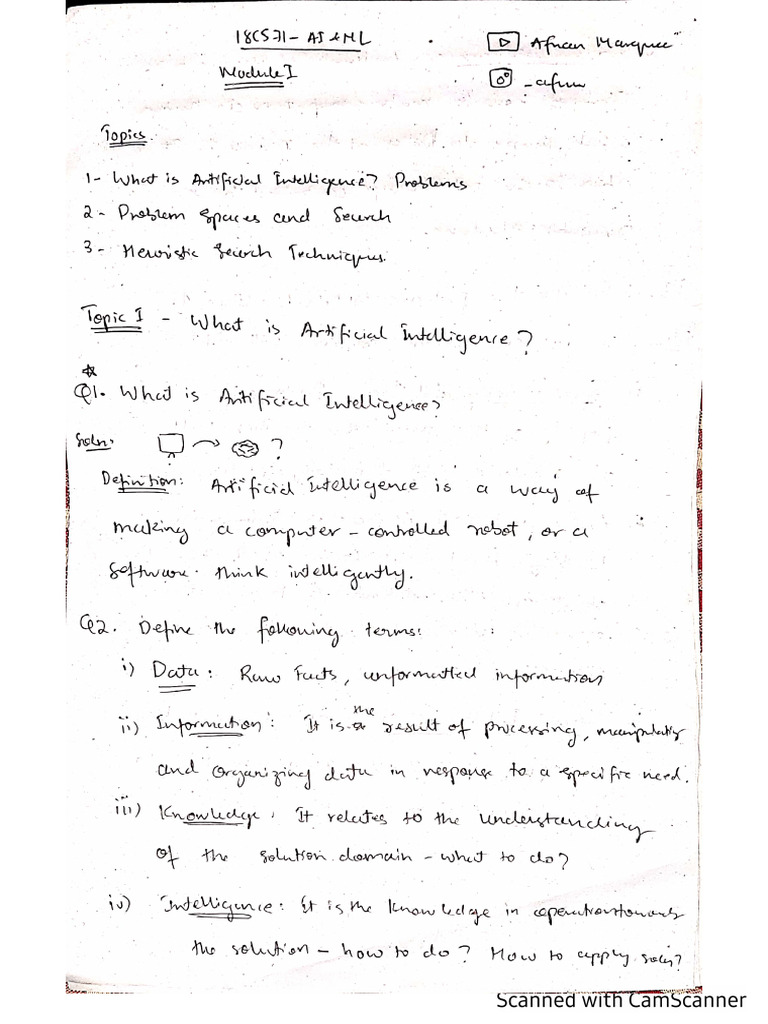 18CS71 - AI & ML
Afnan Marquee
Module I
_afnan
Topics
1- What is Artificial Intelligence? Problems
2- Problem Spaces and Search
3- Heuristic Search Techniques.
Topic I - What is Artificial Intelligence?
Q1. What is Artificial Intelligence?
Soln: ?
Definition: Artificial Intelligence is a way of
making a computer-controlled robot, or a
software think intelligently.
Q2. Define the following terms:
i) Data: Raw Facts, unformatted information
ii) Information: It is the result of processing, manipulating
and Organizing data in response to a specific need.
iii) Knowledge. It relates to the understanding
of the solution domain - what to do?
iv) Intelligence: It is the Knowledge in operation towards
the solution - how to do? How to apply soln?
Scanned with CamScanner